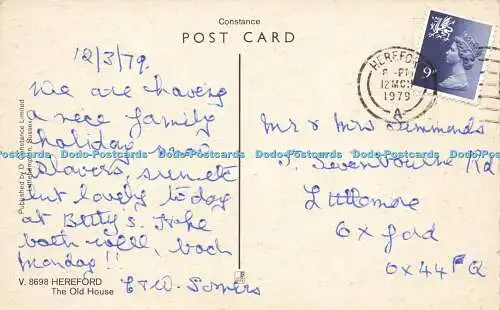 Constance
POST CARD
12/3/79.
We are having
a nice family
holiday, snow
but lovely today
at Betty's. Hope
both well, back
Monday!!
Published by D. Constance Limited
V. 8698 HEREFORD
The Old House
HEREFORD
12 MCH
1979
A
9
Mr & Mrs Simmonds
Littlemore
Oxford
OX4 4
Dodo-Postcards Dodo-Postcards Dodo-Postcards Dodo-Postcards Dodo-Postcards Dodo-Postcards